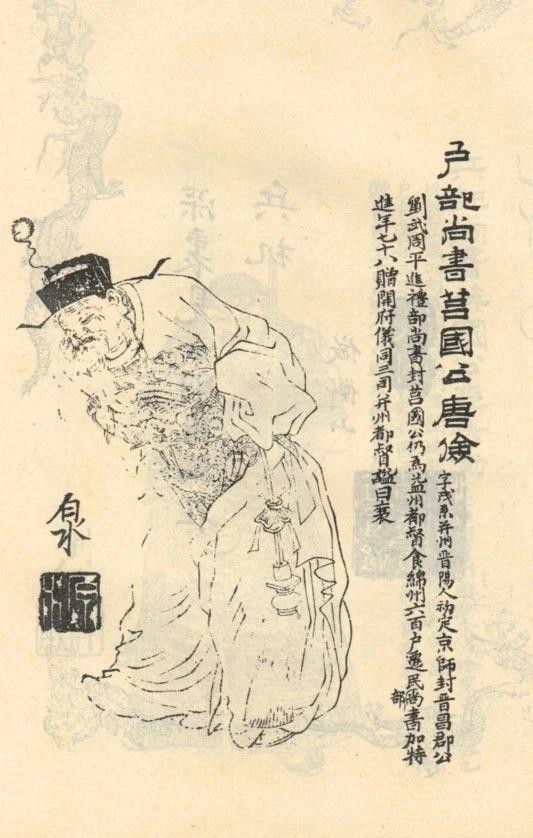 戶部尚書莒國公唐儉 字茂系并州晉陽人初定京師封晉昌郡公
劉武周平進禮部尚書封莒國公仍為益州都督食綿州六百戶遷民部尚書加特
進年七十八贈開府儀同三司并州都督諡曰襄